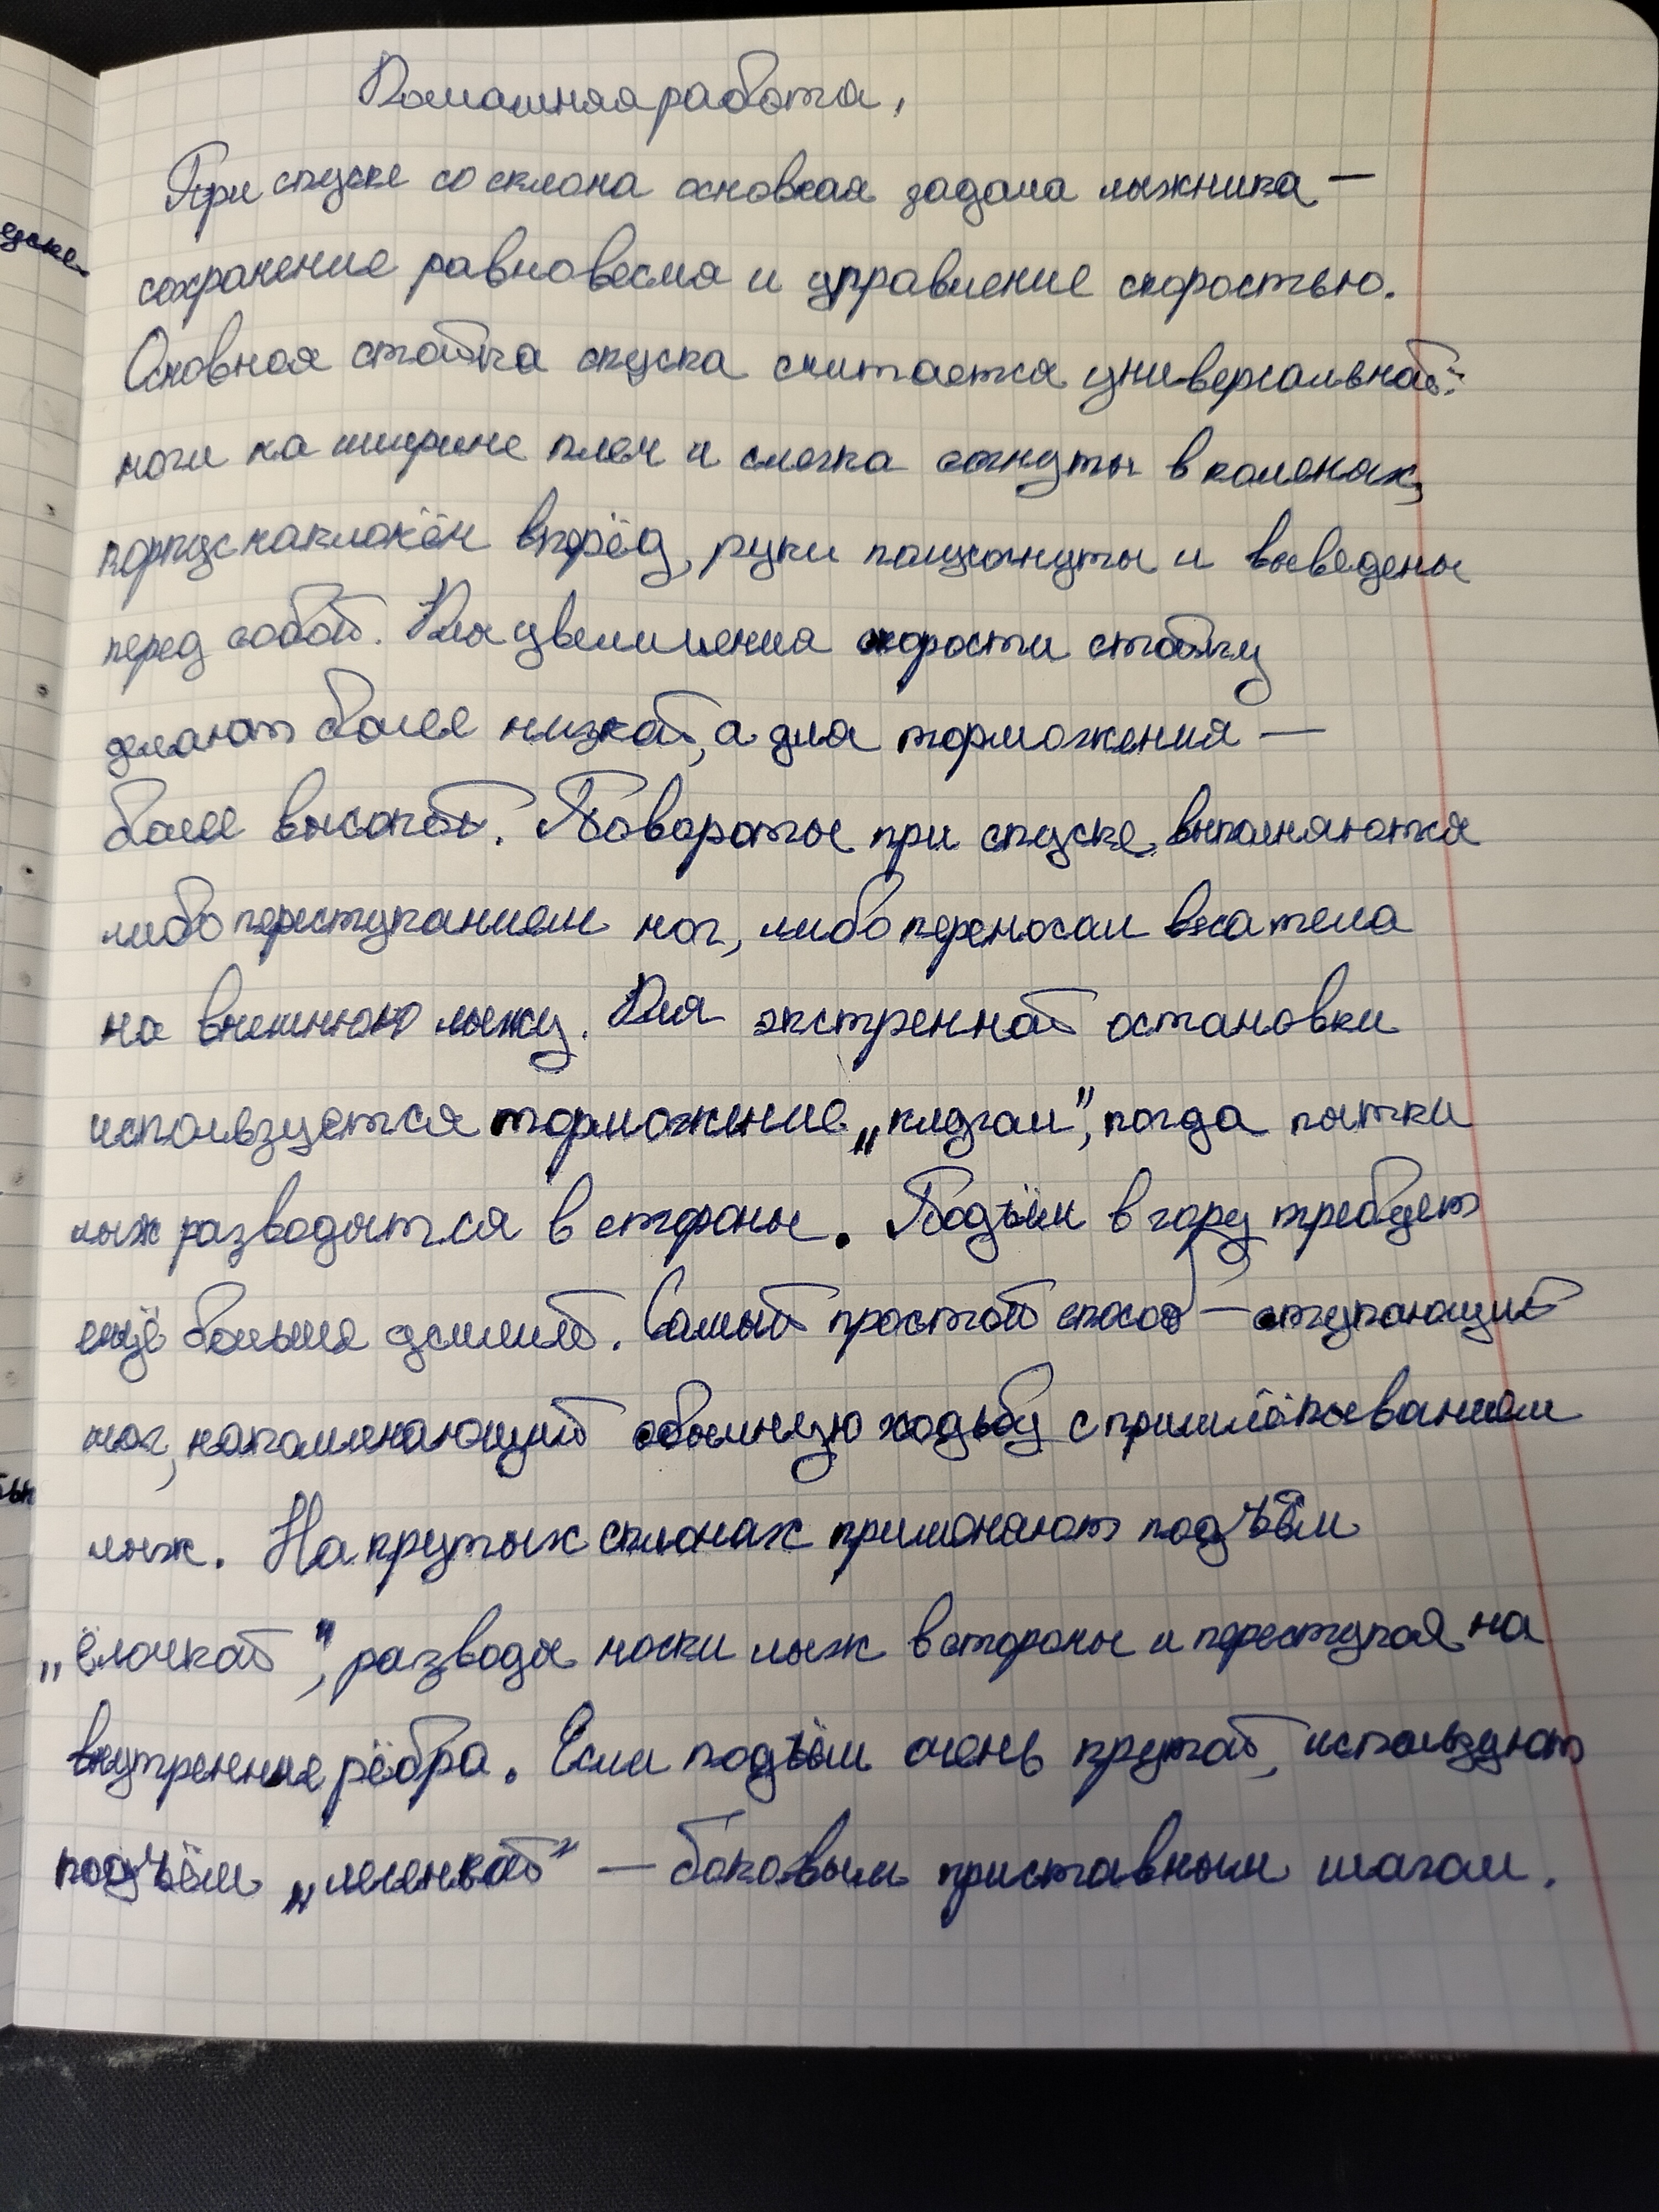 Домашняя работа.
При спуске со склона основная задача лыжника —
сохранение равновесия и управление скоростью.
Основная стойка спуска считается универсальной:
ноги на ширине плеч и слегка согнуты в коленях,
корпус наклонён вперёд, руки полусогнуты и выведены
перед собой. Для увеличения скорости стойку
делают более низкой, а для торможения —
более высокой. Повороты при спуске выполняются
либо переступанием ног, либо переносом веса тела
на внешнюю лыжу. Для экстренной остановки
используется торможение „плугом", когда пятки
лыж разводятся в стороны. Подъём в гору требует
ещё больше усилий. Самый простой способ — ступающий
шаг, напоминающий обычную ходьбу с прихлопыванием
лыж. На крутых склонах применяют подъём
„ёлочкой", разводя носки лыж в стороны и переступая на
внутренние рёбра. Если подъём очень крутой, используют
подъём „лесенкой" — боковым приставным шагом.